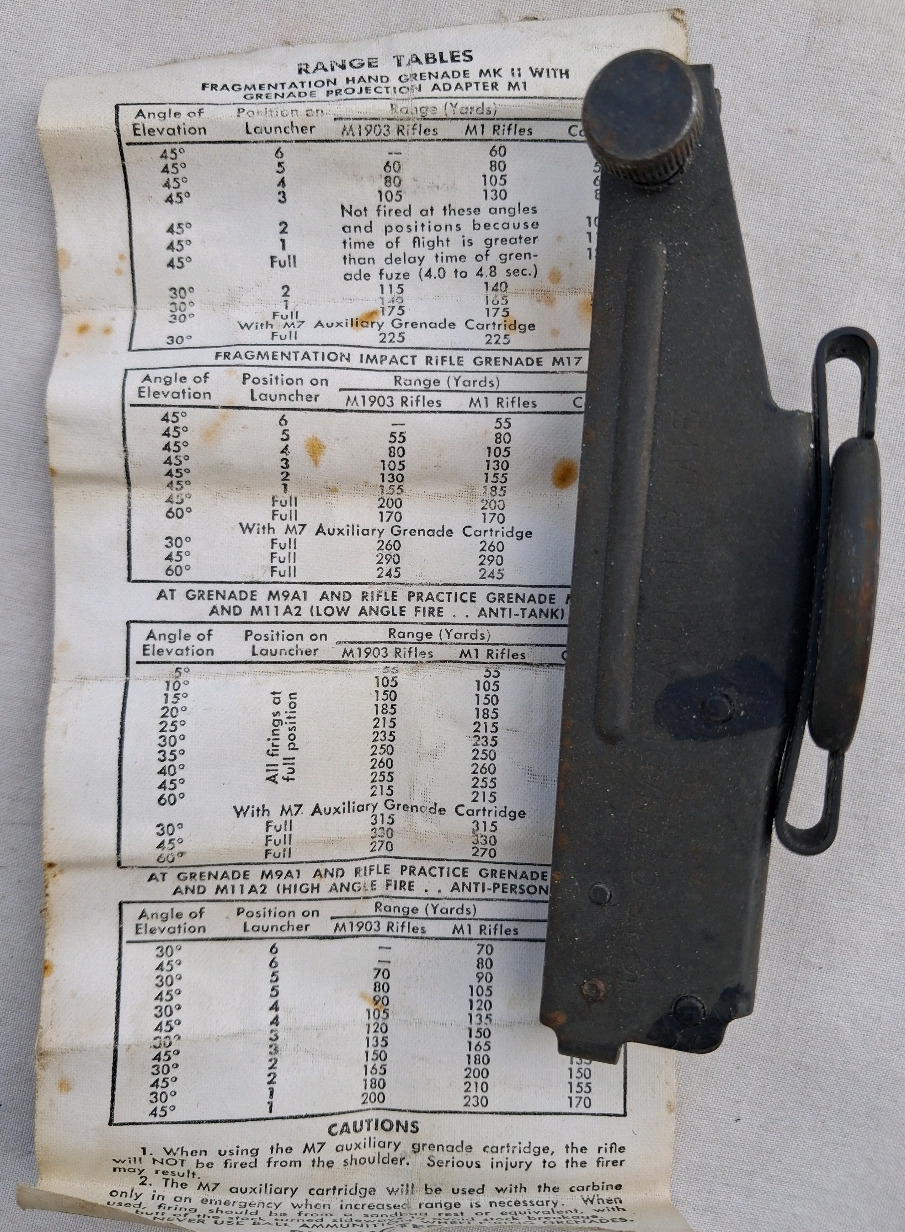 RANGE TABLES
FRAGMENTATION HAND GRENADE MK II WITH
GRENADE PROJECTION ADAPTER M1
Angle of Position on Range (Yards)
Elevation Launcher M1903 Rifles M1 Rifles
45° 6 — 60
45° 5 60 80
45° 4 80 105
45° 3 105 130
Not fired at these angles
45° 2 and positions because
45° 1 time of flight is greater
45° Full than delay time of gren-
ade fuze (4.0 to 4.8 sec.)
30° 2 115 140
30° 1 140 165
30° Full 175 175
With M7 Auxiliary Grenade Cartridge
30° Full 225 225
FRAGMENTATION IMPACT RIFLE GRENADE M17
Angle of Position on Range (Yards)
Elevation Launcher M1903 Rifles M1 Rifles
45° 6 — 55
45° 5 55 80
45° 4 80 105
45° 3 105 130
45° 2 130 155
45° 1 155 185
45° Full 200 200
60° Full 170 170
With M7 Auxiliary Grenade Cartridge
30° Full 260 260
45° Full 290 290
60° Full 245 245
AT GRENADE M9A1 AND RIFLE PRACTICE GRENADE
AND M11A2 (LOW ANGLE FIRE . . ANTI-TANK)
Angle of Position on Range (Yards)
Elevation Launcher M1903 Rifles M1 Rifles
5° 55 55
10° 105 105
15° 150 150
20° 185 185
25° 215 215
30° 235 235
35° 250 250
40° 260 260
45° 255 255
60° 215 215
All firings at
full position
With M7 Auxiliary Grenade Cartridge
30° Full 315 315
45° Full 330 330
60° Full 270 270
AT GRENADE M9A1 AND RIFLE PRACTICE GRENADE
AND M11A2 (HIGH ANGLE FIRE . . ANTI-PERSON
Angle of Position on Range (Yards)
Elevation Launcher M1903 Rifles M1 Rifles
30° 6 — 70
45° 6 — 80
30° 5 70 90
45° 5 80 105
30° 4 90 120
45° 4 105 135
30° 3 120 150
45° 3 135 165
30° 2 150 180 135
45° 2 165 200 150
30° 1 180 210 155
45° 1 200 230 170
CAUTIONS
1. When using the M7 auxiliary grenade cartridge, the rifle
will NOT be fired from the shoulder. Serious injury to the firer
may result.
2. The M7 auxiliary cartridge will be used with the carbine
only in an emergency when increased range is necessary. When
used, firing should be from a sandbag rest or equivalent, with
butt of the stock turned sideways
NEVER USE BALL AMMUNITION WHEN GRENADES.